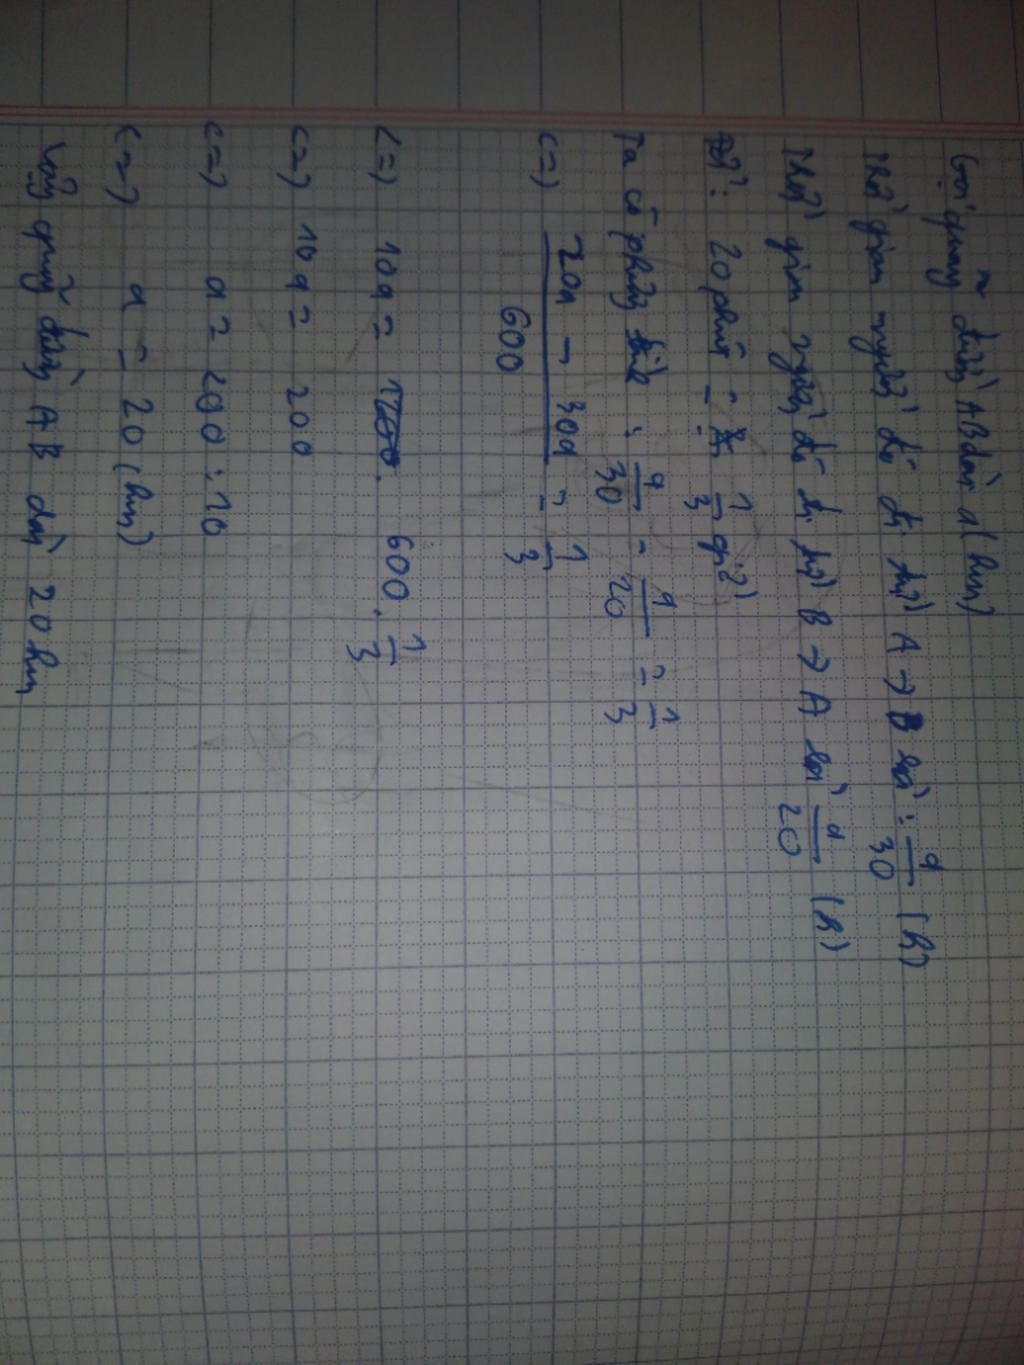 Gọi quãng đường AB dài a (km)
Thời gian người đó đi từ A → B là : a/30 (h)
Thời gian người đó đi từ B → A là a/20 (h)
Đổi : 20 phút = 1/3 giờ
Ta có phương trình : a/30 - a/20 = 1/3
<=> (20a - 30a)/600 = 1/3
<=> 10a = 600 . 1/3
<=> 10a = 200
<=> a = 200 : 10
<=> a = 20 (km)
Vậy quãng đường AB dài 20 km